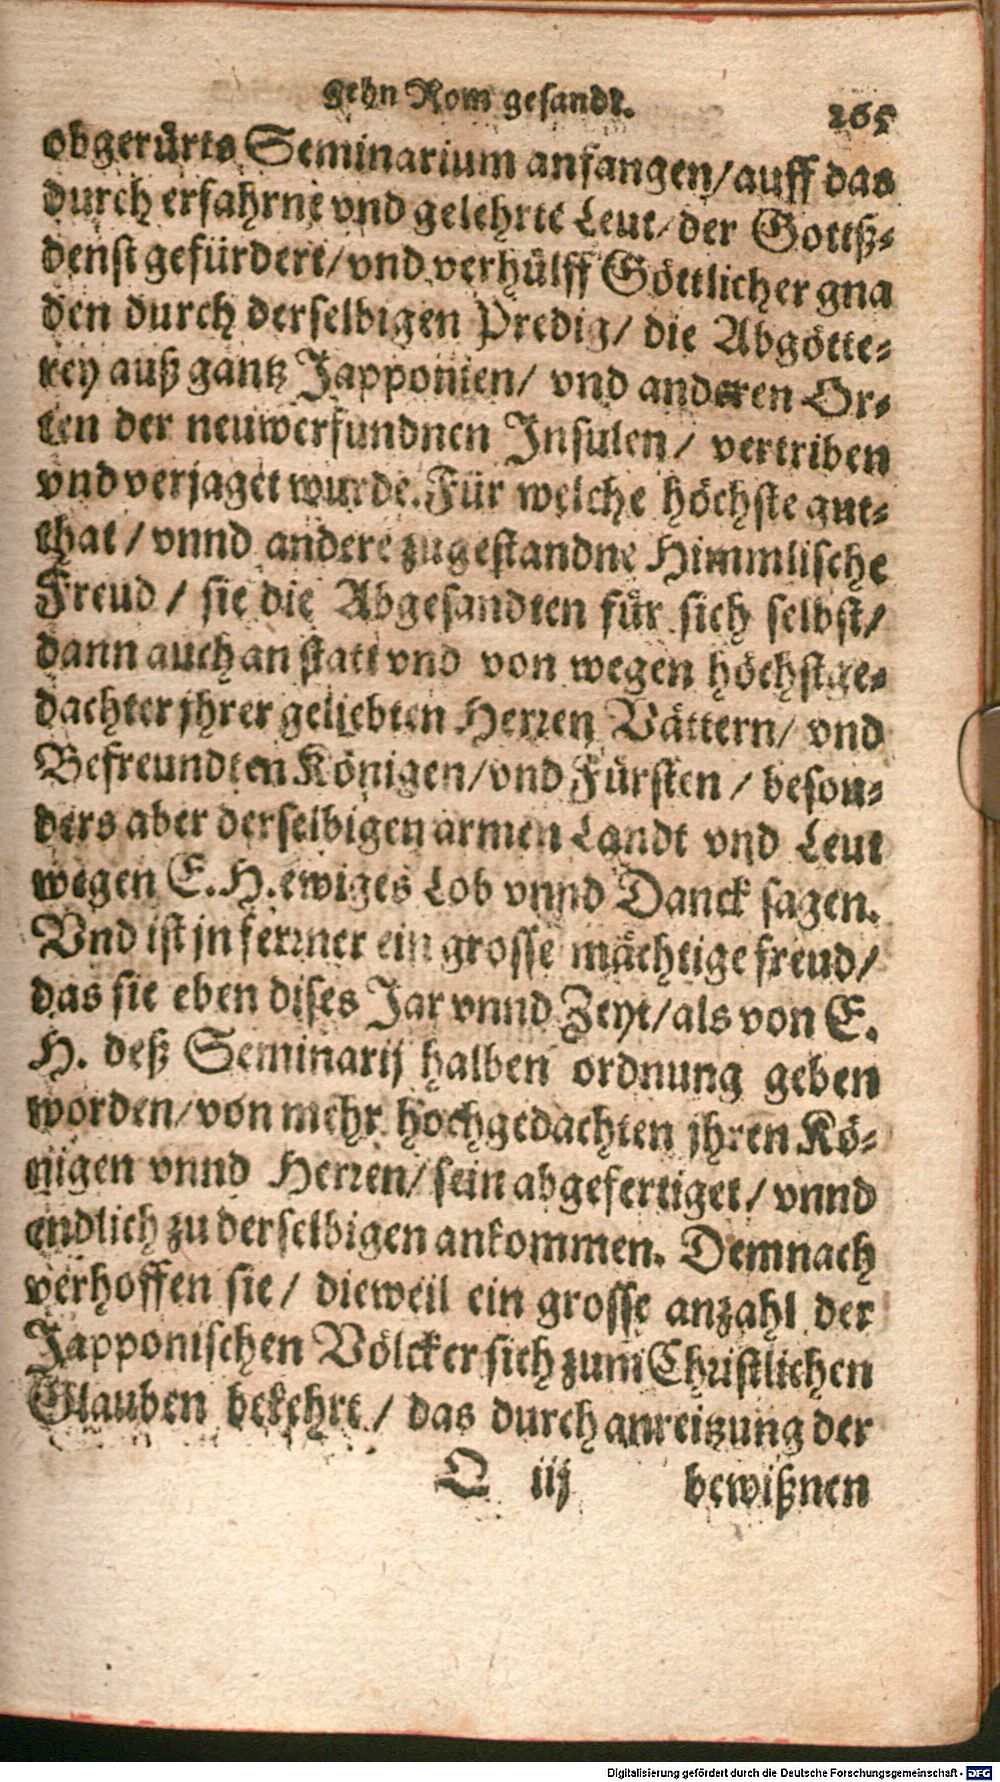 gehn Rom gesandt. 265
obgerürts Seminarium anfangen/auff das
durch erfahrne vnd gelehrte Leut/der Gottß-
denst gefürdert/vnd verhülff Göttlicher gna
den durch derselbigen Predig/ die Abgötte-
rey auß gantz Japponien/ vnd anderen Or-
ten der neuwerfundnen Insulen/ vertriben
vnd verjaget wurde. Für welche höchste gut-
that/ vnnd andere zugestandne Himmlische
Freud/ sie die Abgesandten für sich selbst/
dann auch an statt vnd von wegen höchstge-
dachter jhrer geliebten Herren Vättern/ vnd
Befreundten Königen/vnd Fürsten/ beson-
ders aber derselbigen armen Landt vnd Leut
wegen E.H. ewiges Lob vnnd Danck sagen.
Vnd ist jn ferrner ein grosse mächtige freud/
das sie eben dises Jar vnnd Zeyt/als von E.
H. deß Seminarij halben ordnung geben
worden/von mehr hochgedachten jhren Kö-
nigen vnnd Herren/ sein abgefertiget/ vnnd
endlich zu derselbigen ankommen. Demnach
verhoffen sie/ dieweil ein grosse anzahl der
Japponischen Völcker sich zum Christlichen
Glauben bekehrt/ das durch anreitzung der
Q iij bewißnen
Digitalisierung gefördert durch die Deutsche Forschungsgemeinschaft - DFG